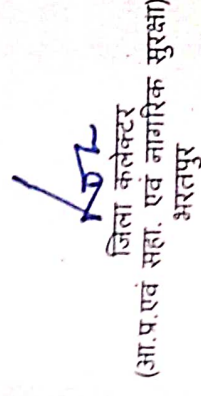 जिला कलेक्टर
(आ.प.एवं सहा. एवं नागरिक सुरक्षा)
भरतपुर